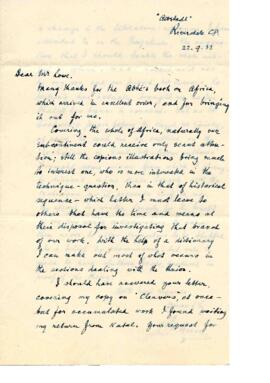 Riversdale C.P.
22. 9. 33
Dear Mr Lowe.
Many thanks for the Abbé's book on Africa,
which arrived in excellent order, and for bringing
it out for me.
Covering the whole of Africa, naturally our
Subcontinent could receive only scant atten-
sion; still the copious illustrations bring much
to interest one, who is more interested in the
technique - question, than in that of historical
sequence - which latter I must leave to
others that have the time and means at
their disposal for investigating that branch
of our work. With the help of a dictionary
I can make out most of what occurs in
the sections dealing with the Union.
I should have answered your letter,
covering my copy on "Cleavers", at once -
but for accumulated work I found waiting
my return from Natal. Your request for